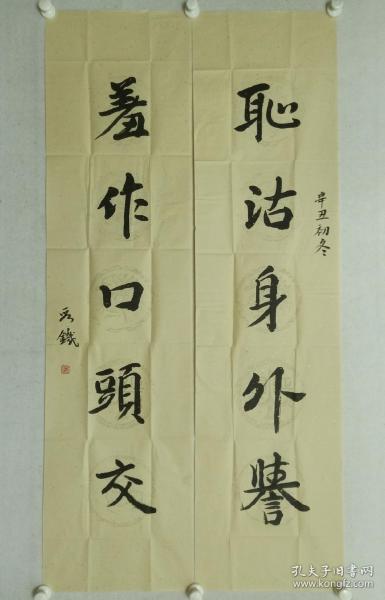 恥沽身外譽
辛丑初冬
羞作口頭交
孔夫子旧书网
www.kongfz.com